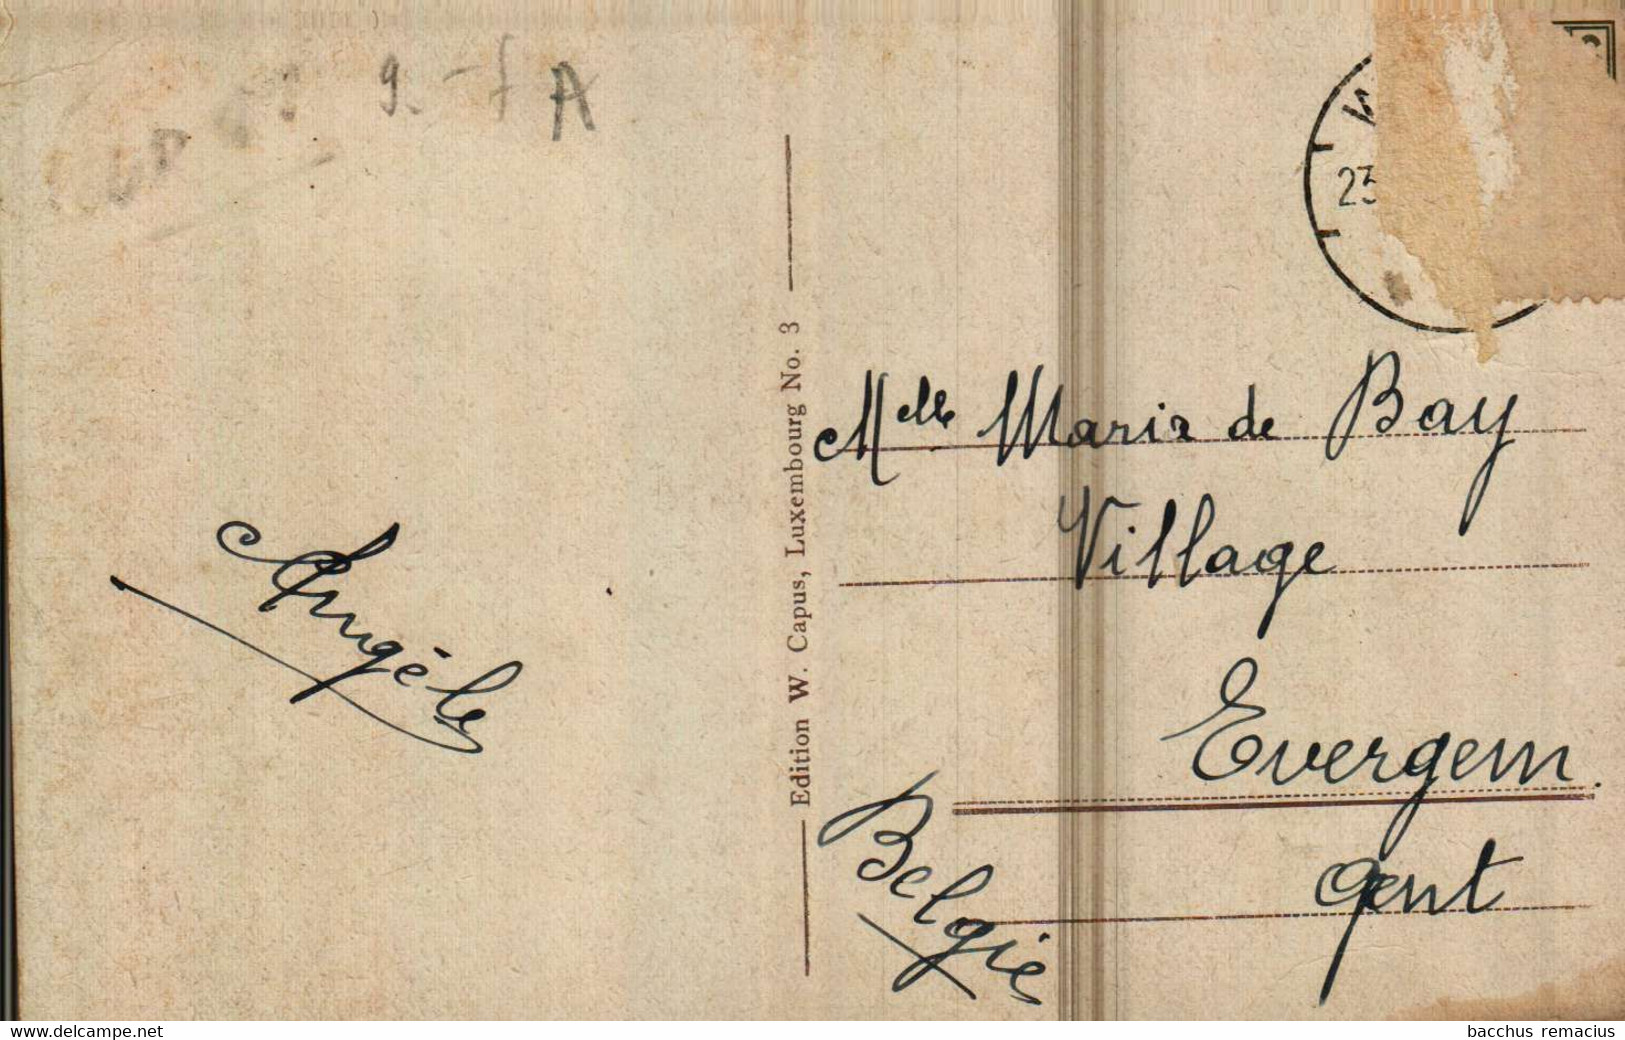 9. - 7 A
23
Edition W. Capus, Luxembourg No. 3
Mlle Maria de Bay
Village
Evergem
Gent
Belgie
Angèle
www.delcampe.net
bacchus remacius